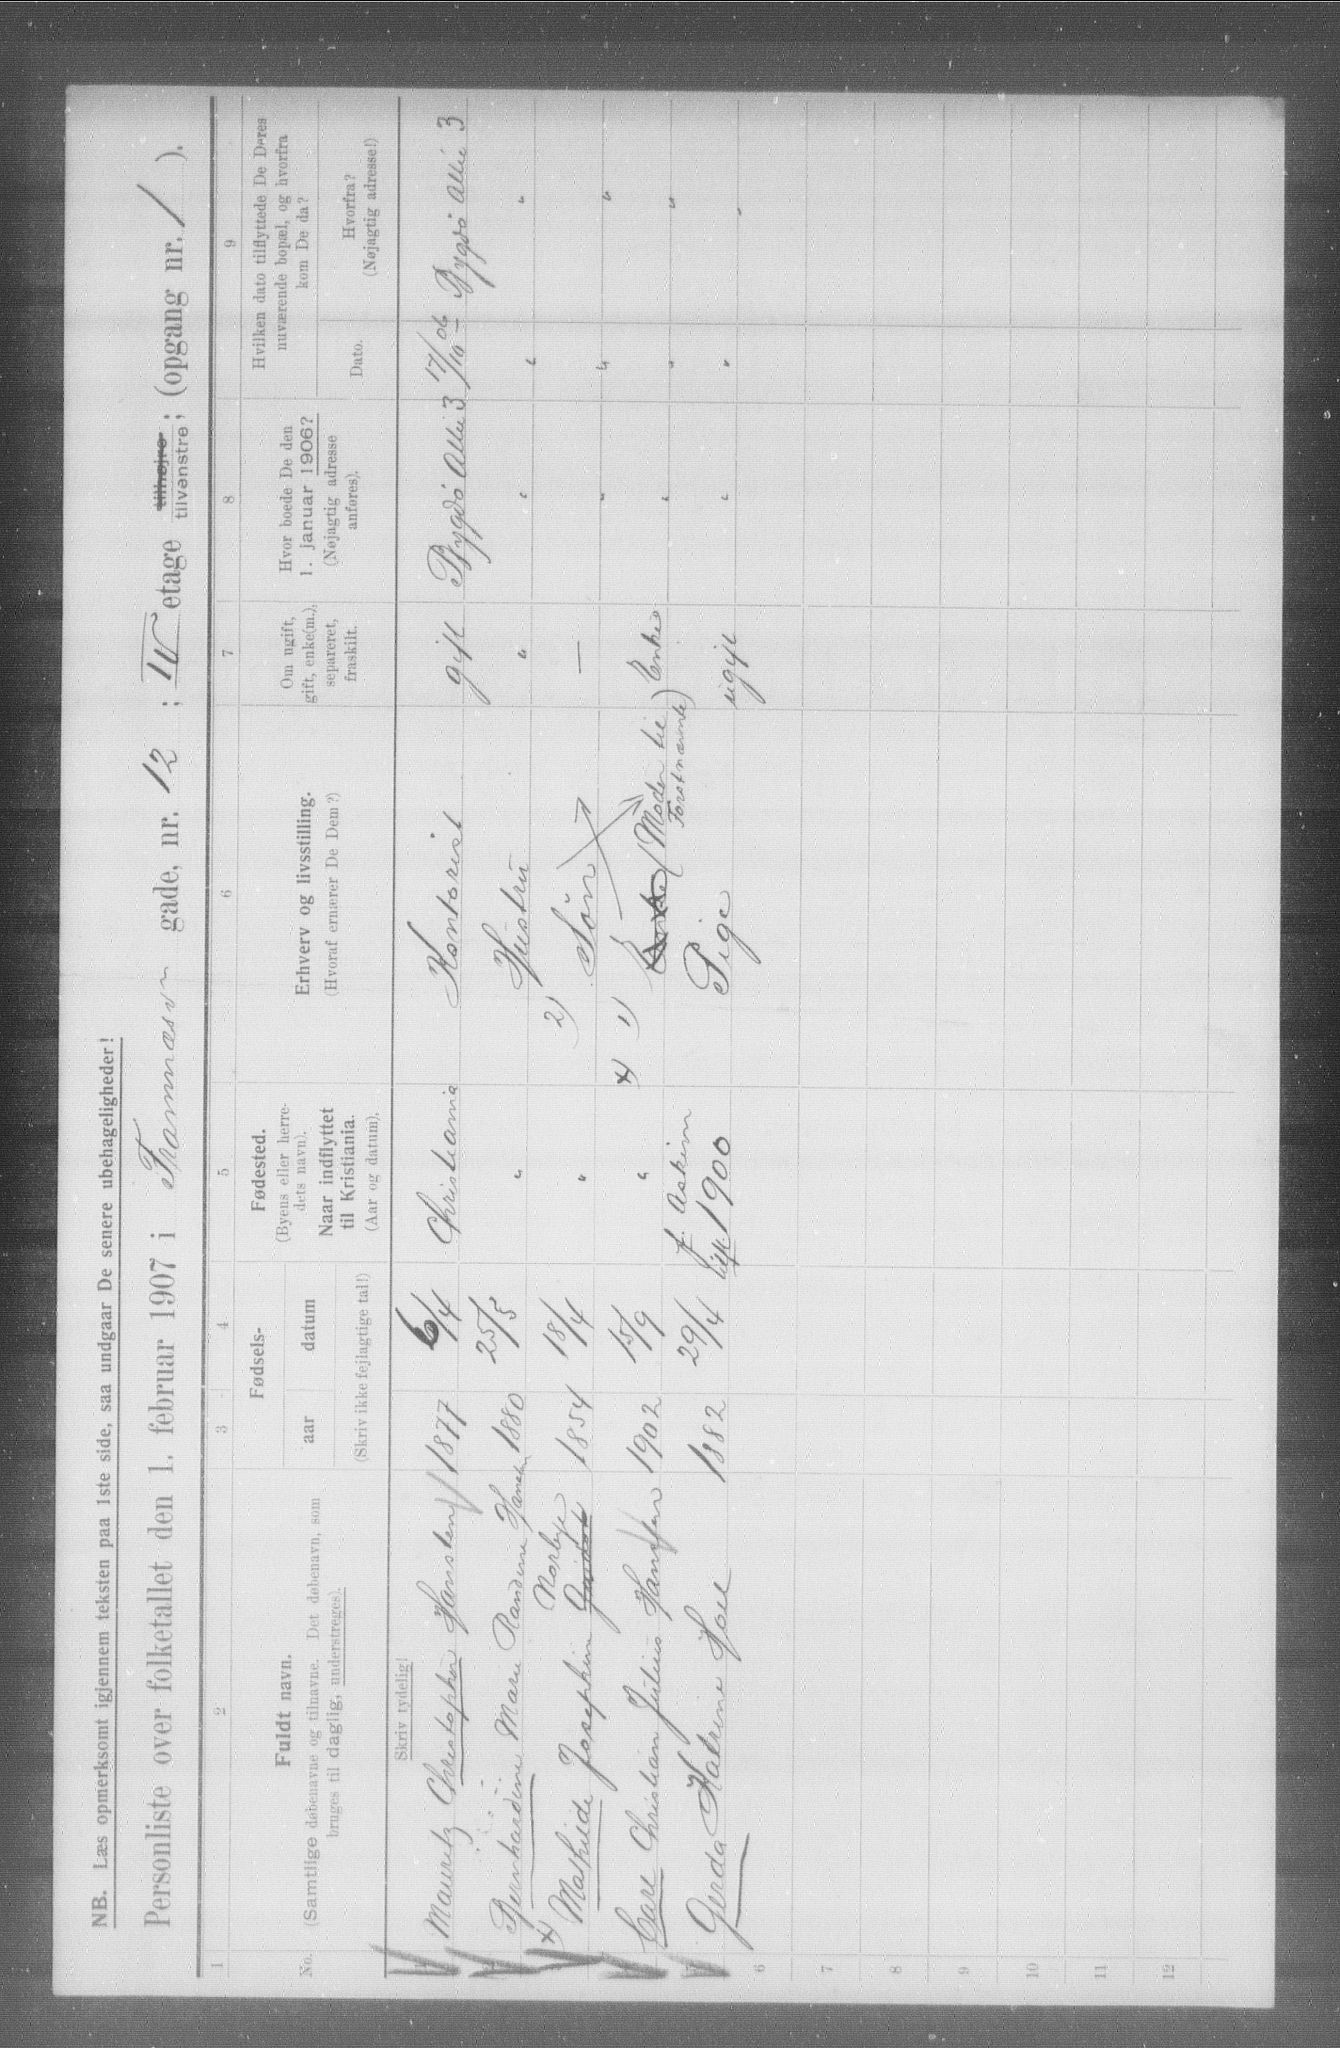 NB. Læs opmerksomt igjennem teksten paa 1ste side, saa undgaar De senere ubehageligheder!
Personliste over folketallet den 1. februar 1907 i Framnæsvn gade, nr. 12 ; IV etage tilhøjre tilvenstre; (opgang nr. / ).
1 2 3 4 5 6 7 8 9
No.
Fuldt navn.
(Samtlige døbenavne og tilnavne. Det døbenavn, som
bruges til daglig, understreges).
Fødsels-
aar datum
(Skriv ikke fejlagtige tal!)
Fødested.
(Byens eller herre-
dets navn).
Naar indflyttet
til Kristiania.
(Aar og datum).
Erhverv og livsstilling.
(Hvoraf ernærer De Dem?)
Om ugift,
gift, enke(m.),
separeret,
fraskilt.
Hvor boede De den
1. januar 1906?
(Nøjagtig adresse
anføres).
Hvilken dato tilflyttede De Deres
nuværende bopæl, og hvorfra
kom De da?
Dato.
Hvorfra?
(Nøjagtig adresse!)
Skriv tydelig!
Mauritz Christopher Hansten 1877 6/4 Christiania Kontorist gift Bygdø Allé 3 17/10 06 Bygdø Allé 3
Bernhardine Marie Randine Hansten 1880 25/5 " Hustru " " " "
x) Mathilde Josephine Norbye 1854 18/4 " 2) Søn — " " "
Carl Christian Julius Hansten 1902 15/9 " x) 1) Enke (Moder til Forstnævnte) Enke " " "
Gerda Katrine Hoel 1882 29/4 f. Askim
1900 Pige ugift " " "
6
7
8
9
10
11
12